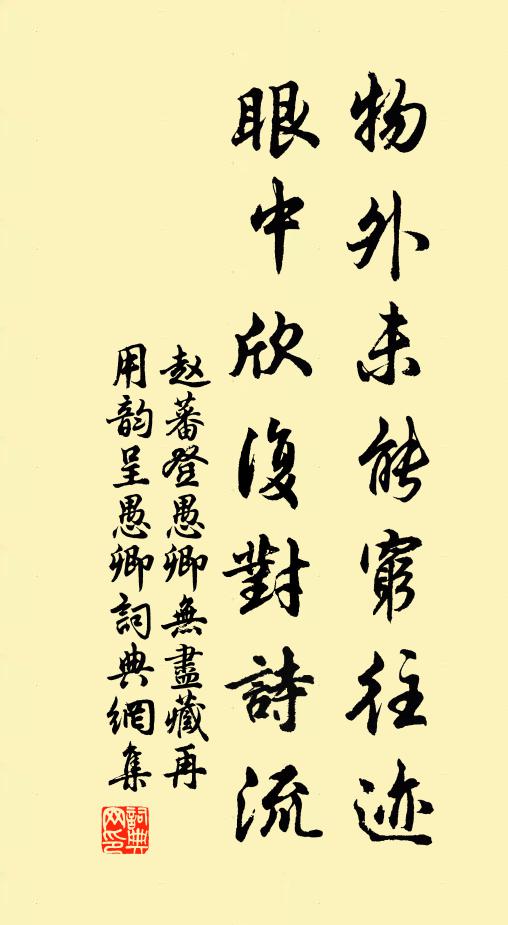 物外未能窮往迹
眼中欣復對詩流
赵蕃登愚卿無盡藏再
用韵呈愚卿詞典網集
詞典網印